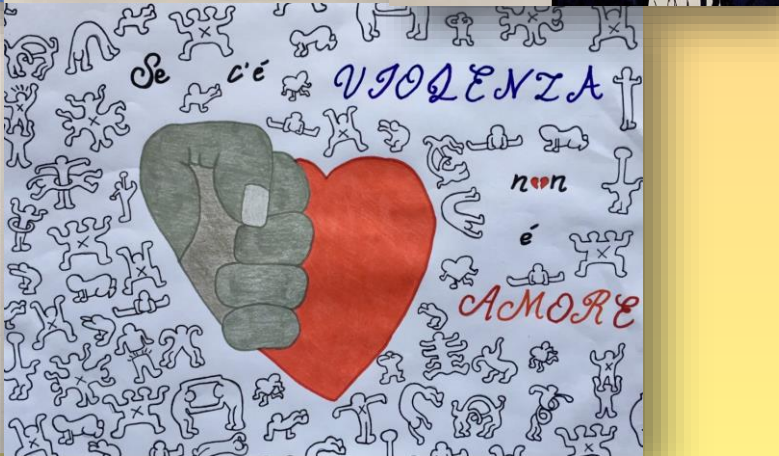 Se c'é VIOLENZA
non
é
AMORE